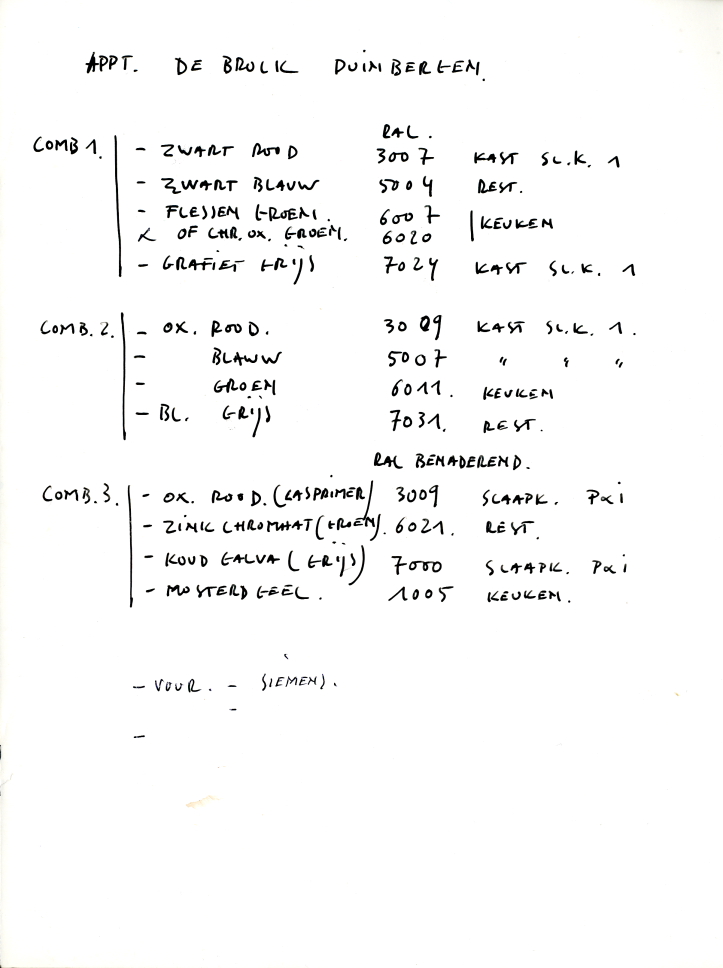 APPT. DE BROLK DUINBERGEN.
RAL.
COMB 1. - ZWART ROOD 3007 KAST SL.K. 1
- ZWART BLAUW 5004 REST.
- FLESSEN GROEN. 6007 KEUKEN
OF CHR. OX. GROEN. 6020
- GRAFIET GRIJS 7024 KAST SL.K. 1
COMB. 2. - OX. ROOD. 3009 KAST SL.K. 1.
- BLAUW 5007 " " "
- GROEN 6011. KEUKEN
- BL. GRIJS 7031. REST.
RAL BENADEREND.
COMB. 3. - OX. ROOD. (LASPRIMER) 3009 SLAAPK. P&i
- ZINK CHROMAAT (GROEN). 6021. REST.
- KOUD GALVA (GRIJS) 7000 SLAAPK. P&i
- MOSTERD GEEL. 1005 KEUKEN.
- VUUR. - SIEMENS.
-
-